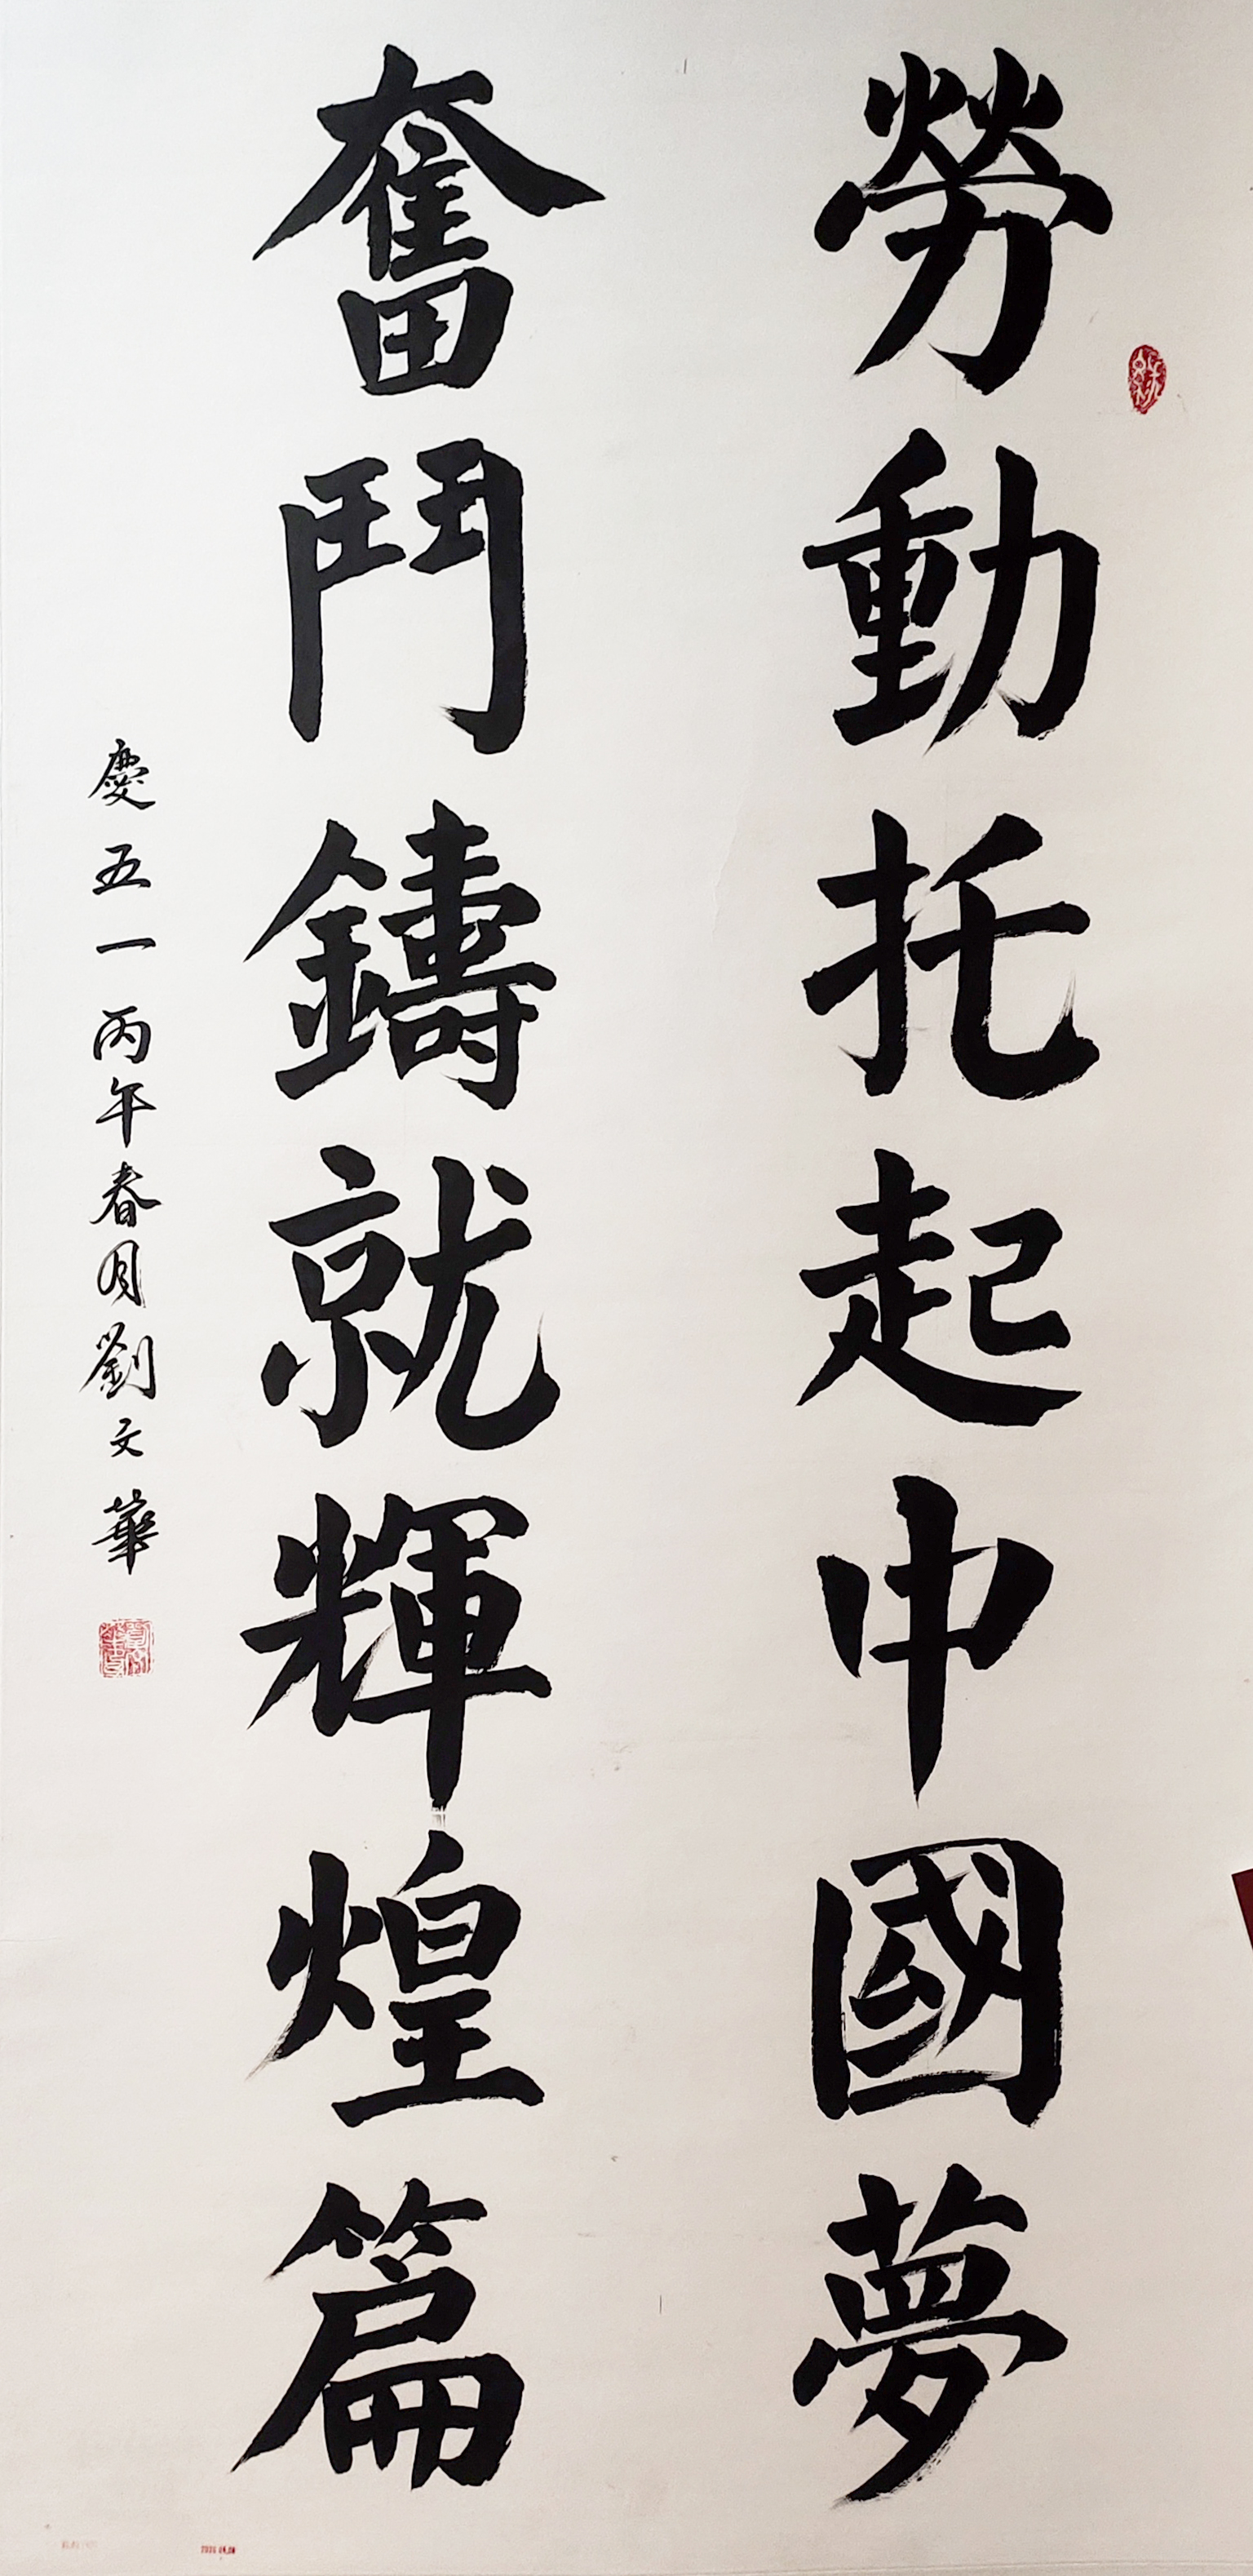 勞動托起中國夢
奮鬥鑄就輝煌篇
慶五一丙午春月劉文華